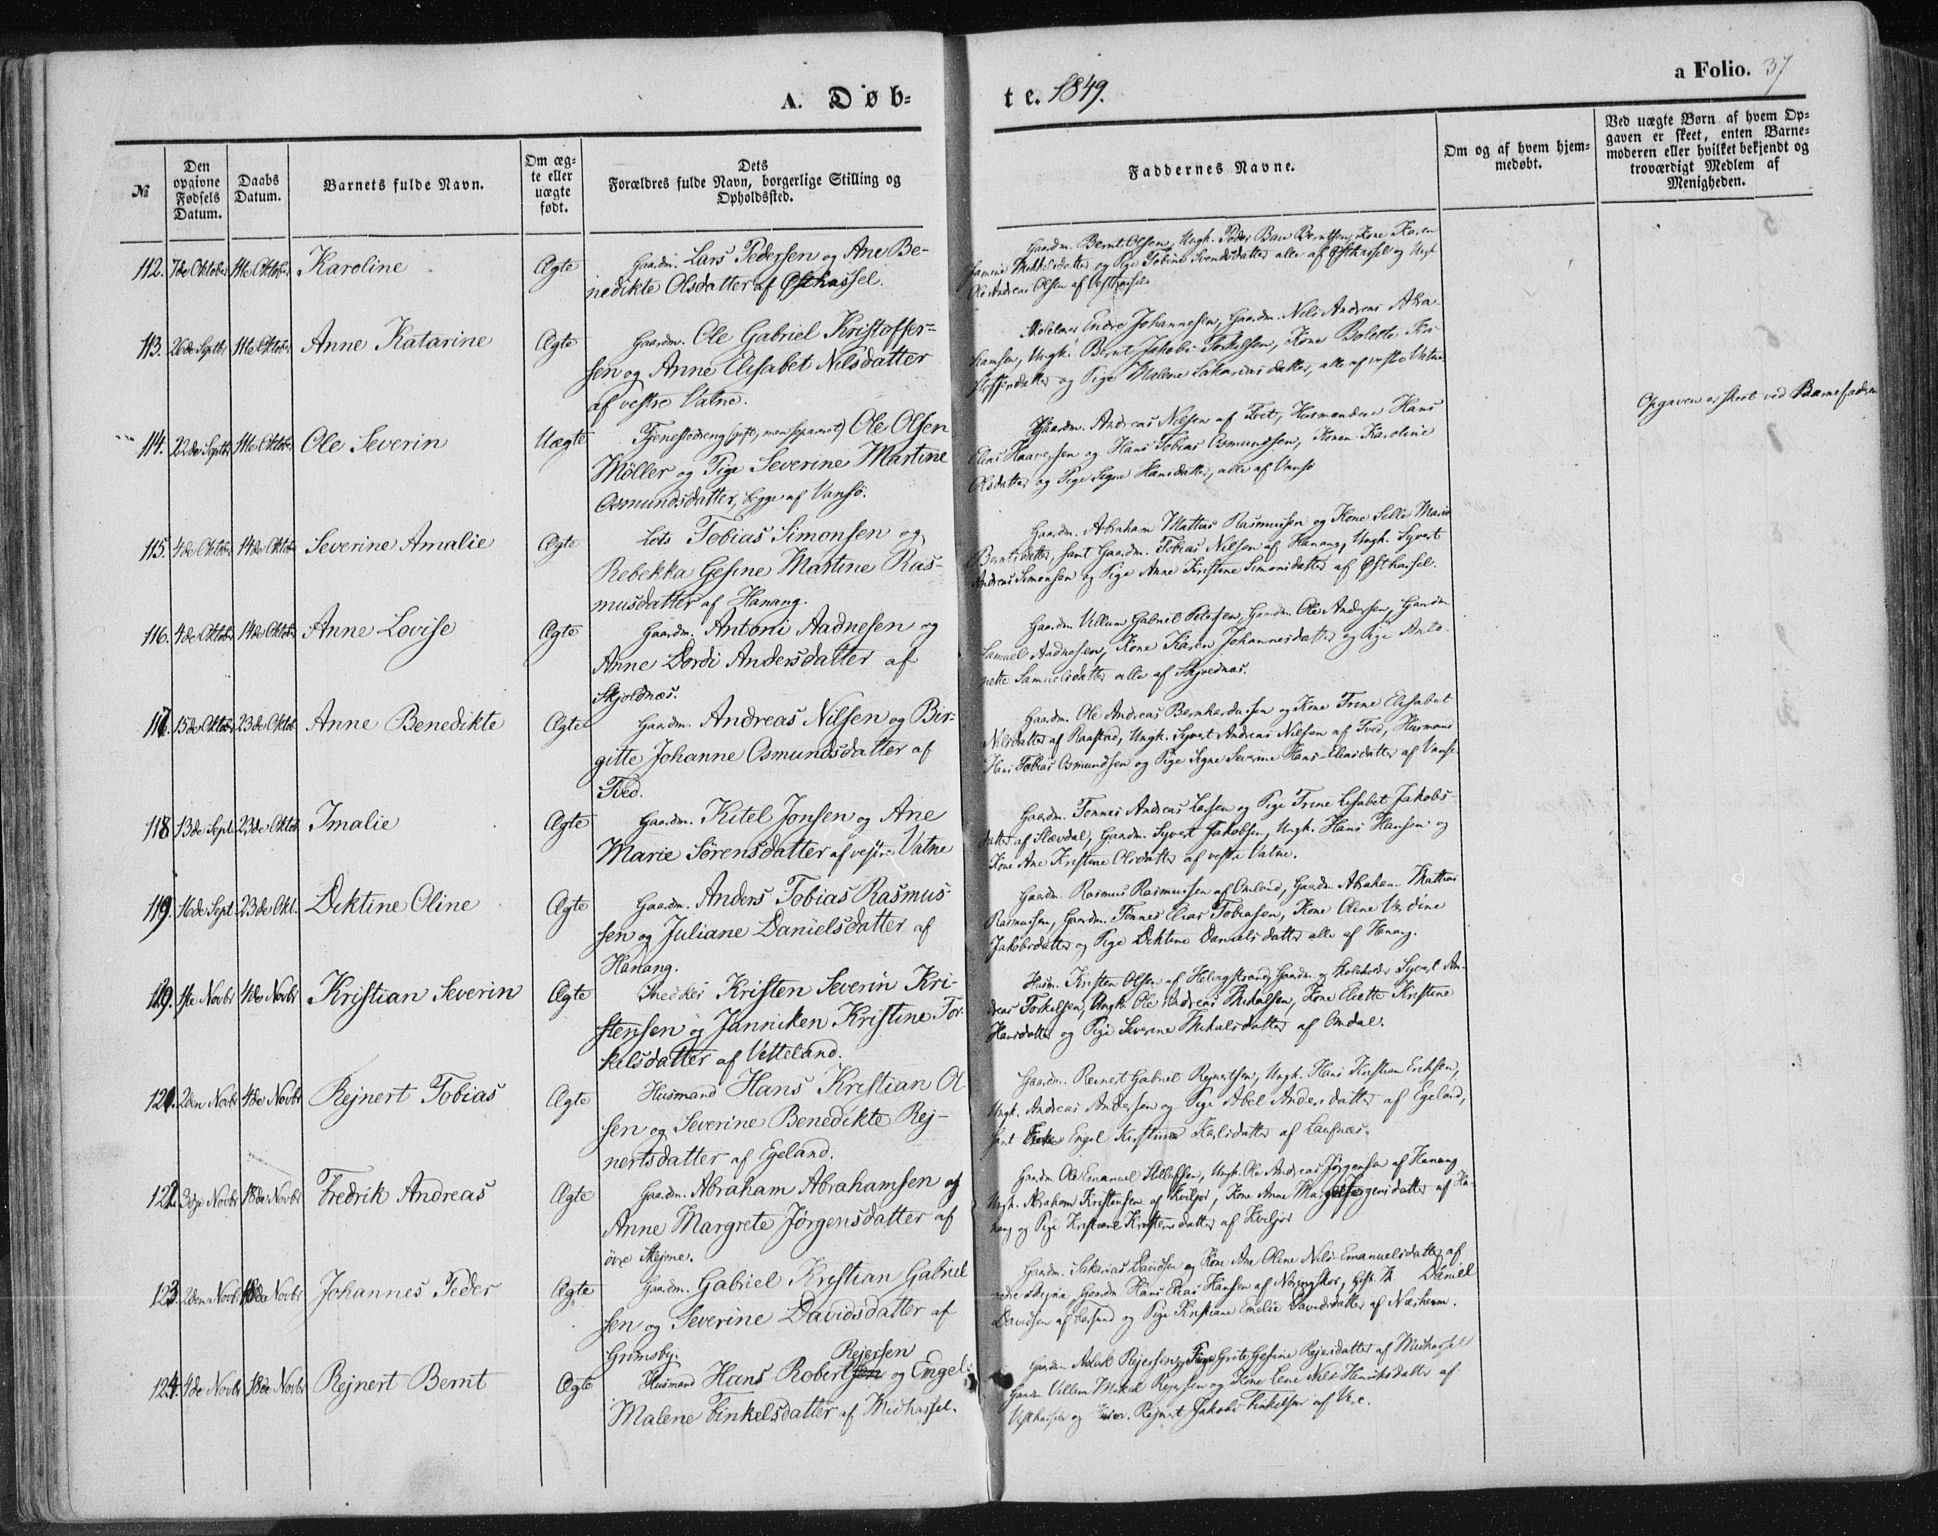 A. Døb-
te. 1849.
a Folio. 37
№
Den opgivne Fødsels Datum.
Daabs Datum.
Barnets fulde Navn.
Om æg-
te eller
uægte
født.
Dets
Forældres fulde Navn, borgerlige Stilling og
Opholdssted.
Faddernes Navne.
Om og af hvem hjem-
medøbt.
Ved uægte Børn af hvem Op-
gaven er skeet, enten Barne-
moderen eller hvilket bekjendt og
troværdigt Medlem af
Menigheden.
112. 7de Oktober 11te Oktober Karoline Ægte Gaardm. Lars Pedersen og Ane Be-
nedikte Olsdatter af Østhassel.
Gaardm. Bernt Olsen, Ungk. Peder Berntsen, Kone Karen
Mikkelsdatter og Pige Tobine Svendsdatter alle af Østhassel og Ungk.
Ole Andreas Olsen af Vesthassel
113. 26de Septbr 11te Oktober Anne Katarine Ægte Gaardm. Ole Gabriel Kristoffer-
sen og Anne Elisabet Nilsdatter
af vestre Vatne.
Endre Johannesen, Gaardm. Nils Andreas Abra-
hamsen, Ungk. Bernt Jakob Torkelsen, Kone Bolette Kri-
stoffersdatter og Pige Malene Sakariasdatter, alle af vestre Vatne
114. 22de Septbr 11te Oktober Ole Severin Uægte Tjenestedreng (gift, men separert) Ole Olsen
Møller og Pige Severine Martine
Osmundsdatter, begge af Vansö.
Gaardm. Andreas Nilsen af Tvet, Husmændene Hans
Elias Haaversen og Hans Tobias Osmundsen, Konen Karoline
Olsdatter og Pige Signe Hansdatter, alle af Vansö
Opgaven er skeet ved Barnefaderen
115. 4de Oktober 14de Oktober Severine Amalie Ægte Lods Tobias Simonsen og
Rebekka Gesine Martine Ras-
musdatter af Hanang.
Gaardm. Abraham Mathias Rasmussen og Kone Selle Marie
Berntsdatter, samt Gaardm. Tobias Nilsen af Hanang, Ungk. Syvert
Andreas Simonsen og Pige Anne Kristine Simonsdatter af Østhassel.
116. 4de Oktober 14de Oktober Anne Lovise Ægte Gaardm. Antoni Aadnesen og
Anne Dordi Andersdatter af
Skjoldnæs.
Gaardm Villum Gabriel Petersen, Gaardm. Ole Andersen, Gaardm
Samuel Aadnesen, Kone Karen Johannesdatter og Pige Anto-
nette Samuelsdatter alle af
117. 15de Oktober 23de Oktob. Anne Benedikte Ægte Gaardm. Andreas Nilsen og Bir-
gitte Johanne Osmundsdatter af
Tved.
Gaardm. Ole Andreas Bernhardussen og Kone Trine Elisabet
Nilsdatter af Raastad, Ungk. Syvert Andreas Nilsen af Tved, Husmand
Hans Tobias Osmundsen og Pige Signe Severine Hans-Eliasdatter af Vansö.
118 13de Sept. 23de Oktob Imalie Ægte Gaardm. Kitel Jonsen og Ane
Marie Sörensdatter af vestre Vatne
Gaardm. Tønnes Andreas Larsen og Pige Trine Lisabet Jakobs-
datter af Slævdal, Gaardm. Syvert Jakobsen, Ungk. Hans Hansen og
Kone Ane Kristine Olsdatter af vestre Vatne.
119. 16de Sept. 23de Okt. Diktine Oline Ægte Gaardm. Anders Tobias Rasmus-
sen og Juliane Danielsdatter af
Hanang.
Gaardm. Rasmus Rasmussen af Omland, Gaardm. Abraham Mathias
Rasmussen, Gaardm. Tønnes Elias Tobiasen, Kone Oline Verdine
Jakobsdatter og Pige Diktine Danielsdatter alle af Hanang.
119. 1ste Novbr 4de Novbr Kristian Severin Ægte Snedker Kristen Severin Kri-
stensen og Janniken Kristine Tor-
kelsdatter af Vetteland.
Husm. Kristen Olsen af Helvigstrand, Gaardm. og Skoleholder Syvert An-
dreas Torkelsen, Ungk. Ole Andreas Mikalsen, Kone Eliette Kristine
Hansdatter og Pige Severine Mikalsdatter af Omdal.
121. 2den Novbr 4de Novbr Rejnert Tobias Ægte Husmand Hans Kristian Ol-
sen og Severine Benedikte Rej-
nertsdatter af Egeland.
Gaardm. Reinert Gabriel Rejnertsen, Ungk. Hans Kristian Eriksen,
Ungk. Andreas Andersen og Pige Abel Andersdatter af Egeland,
samt Engel Kristine Karlsdatter af
122. 3die Novbr 18de Novbr Fredrik Andreas Ægte Gaardm. Abraham Abrahamsen og
Anne Margrete Jörgensdatter af
övre Skejme.
Gaardm Ole Emanuel Ungk. Ole Andreas Jörgensen af Hanang
Ungk. Abraham Kristensen af Kviljo, Kone Anne Jörgensdatter af Ha-
nang og Pige Kristiane Kristensdatter af Kviljo
123. 2den Novbr 18de Novbr Johannes Peder Ægte Gaardm. Gabriel Kristian Gabriel
sen og Severine Davidsdatter af
Grimsby.
Gaardm. Sakarias Davidsen og Kone Ane Oline Nils-Emanuelsdatter af
nedre Skejme, Gaardm Hans Elias Hansen af Daniel
Davidsen af og Pige Kristiane Emelie Davidsdatter af Næsheim.
124. 4de Novbr 18de Novbr Rejnert Bernt Ægte Husmand Hans Robert Rejersen og Engel
Malene Tinkelsdatter af Midhassel.
Gaardm Aslak Rejersen, Pige Grete Gesine Rejersdatter af Midhassel
Gaardm. Villem Mikal Rejersen og Kone Lene Nils-Henriksdatter af
Vesthassel og Rejnert Jakob Tinkelsen af Ve.